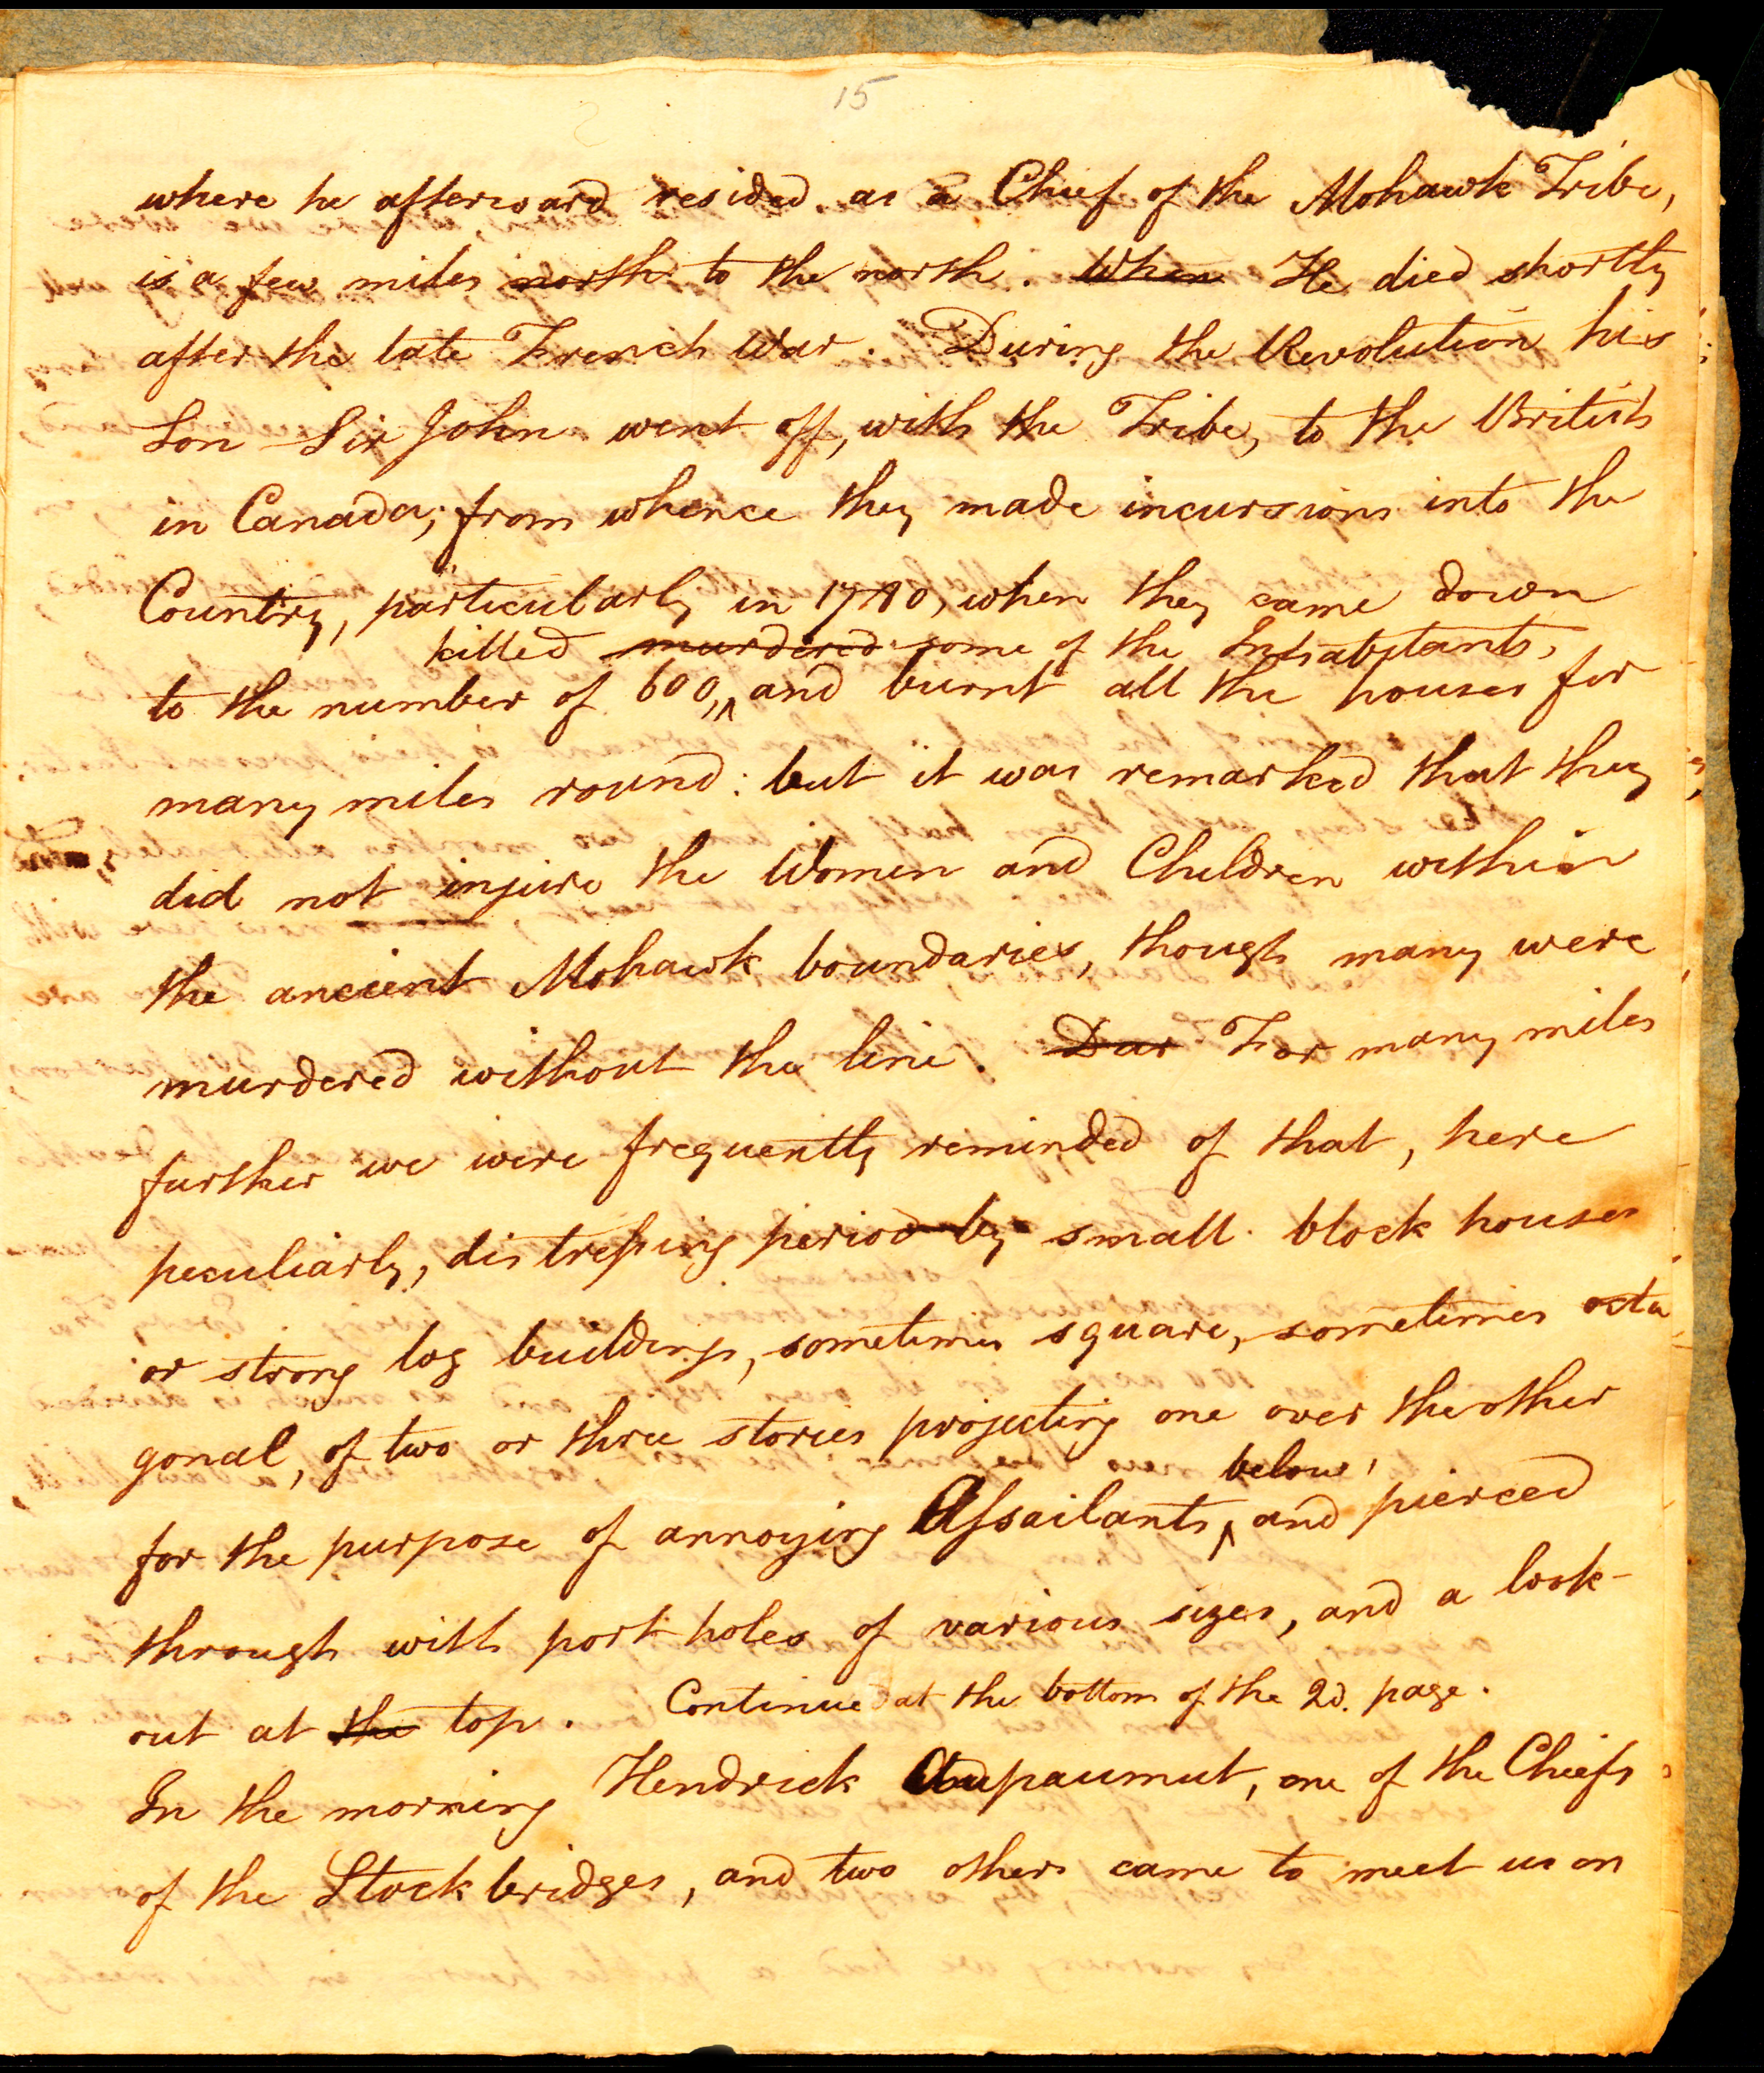 15
where he afterward resided as a Chief of the Mohawk Tribe,
is a few miles north to the north. When He died shortly
after the late French War. During the Revolution his
Son Sir John went off, with the Tribe, to the British
in Canada; from whence they made incursions into the
Country, particularly in 1780, when they came down
killed murdered some of the Inhabitants,
to the number of 600, ‸ and burnt all the houses for
many miles round: but it was remarked that they
did not injure the Women and Children within
the ancient Mohawk boundaries, though many were
murdered without the line. Dur For many miles
further we were frequently reminded of that, here
peculiarly, distressing period by small block houses
or strong log buildings, sometimes square, sometimes octa
gonal, of two or three stories projecting one over the other
below,
for the purpose of annoying Assailants ‸ and pierced
through with port holes of various sizes, and a look-
out at the top. Continued at the bottom of the 2d. page.
In the morning Hendrick Aupaumut, one of the Chiefs
of the Stockbridges, and two others came to meet us on